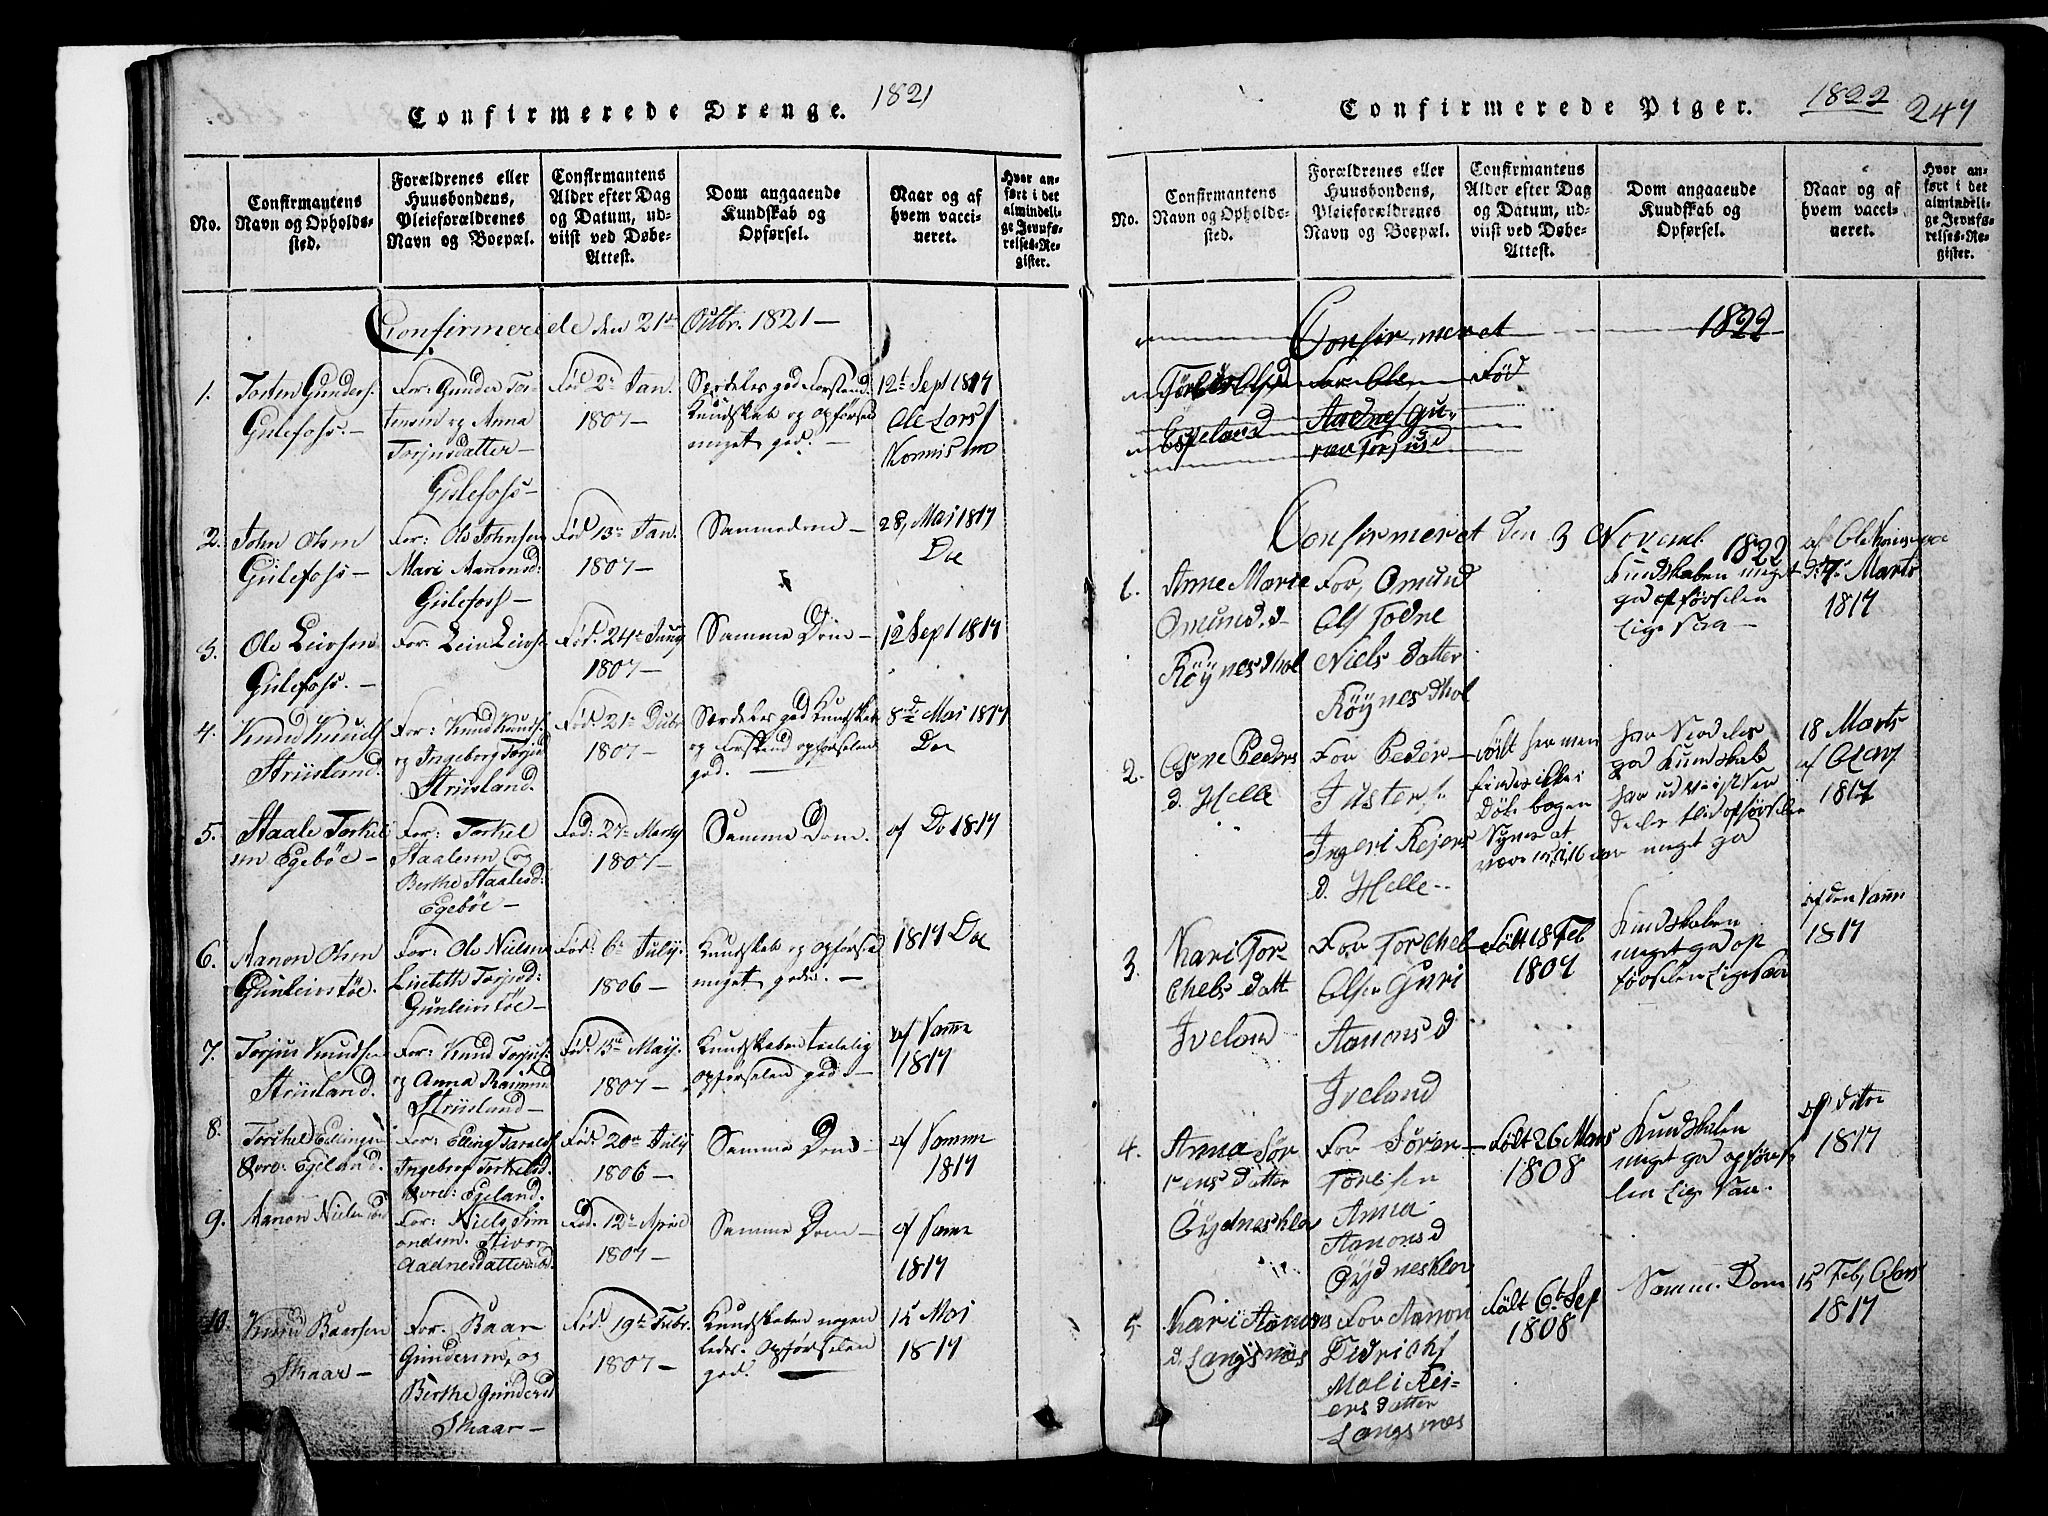 Confirmerede Drenge. 1821
No.
Confirmantens
Navn og Opholds-
sted.
Forældrenes eller
Huusbondens,
Pleieforældrenes
Navn og Boepæl.
Confirmantens
Alder efter Dag
og Datum, ud-
viist ved Døbe-
Attest.
Dom angaaende
Kundskab og
Opførsel.
Naar og af
hvem vacci-
neret.
Hvor an-
ført i det
almindeli-
ge Jevnfø-
relses-Re-
gister.
Confirmerede den 21de Octbr. 1821 —
1.
Gulefoss. —
For: Gunder Tor-
tensen og Anna
Torjusdatter —
Gulefoss —
Fød 2n Jan.
1807 —
Særdeles god Forstand.
Kundskab og opførsel
meget god. —
12t Sept 1817
Ole Lars
2.
John Olsen
Gulefoss —
For: Ole Johnsen
Mari Aanonsd:
Gulefoss —
Fød 13n Jan.
1807 —
Sammedom —
28, Mai 1817
Do
3.
Ole Leivsen
Gulefoss. —
For: Leiv Leivs.
1807 —
Samme Dom —
12 Sept 1817
4.
Knud Knuds
Striisland.
For: Knud Knuds.
og Ingeborg Torjusd
Striisland.
Fød. 21n
1807 —
Særdeles god Kundskab
og Forstand opførselen
god. —
8de Mai 1817
Do
5.
Staale Torkel
sen Egeböe —
For: Torkel
Staalesen og
Berthe Staalesd:
Egeböe —
Fød: 27n Marts
1807 —
Samme Dom. —
af Do 1817
6.
Aanon Olsen
Gunleivstöe.
For: Ole Nielsen
Liseth Torjusd:
Gunleivstöe —
Fød: 6n July.
1806 —
Kundskab og opførsel
meget gode. —
1817 Do
7.
Torjus Knudsen
Striisland.
For: Knud Torjus.
og Anna
Striisland —
Fød. 15n May.
1807 —
Kundskaben taalelig
opførselen god. —
af Samme
1817
8.
Torkel Ellingsen
Øvre: Egeland.
For: Elling Taralds
Ingeborg Torkelsd.
Øvre: Egeland.
Fød: 20n July
1806 —
Samme Dom —
af Samme
1817
9.
Aanon Nielsen
For: Niels Sim
ondsen.
Aadnesdatter
Fød. 12n April
1807 —
Samme Dom —
af Samme
1817
10.
Knud Baarsen
Skaar —
For. Baar
Gundersen, og
Berthe Gundersd
Skaar —
Fød. 19te Febr.
1807 —
Kundskaben nogen
ledes. Opførselen
god. —
15 Mai
1817
Confirmerede Piger. 1822 247
No.
Confirmantens
Navn og Opholds-
sted.
Forældrenes eller
Huusbondens,
Pleieforældrenes
Navn og Boepæl.
Confirmantens
Alder efter Dag
og Datum, ud-
viist ved Døbe-
Attest.
Dom angaaende
Kundskab og
Opførsel.
Naar og af
hvem vacci-
neret.
Hvor an-
ført i det
almindeli-
ge Jevnfø-
relses-Re-
gister.
Confirmeret 1822
Olsd
Espeland
For Ole
Fød
Confirmeret den 3 Novemb. 1822
1.
Anne Marie
Omund.d
Röynesdhol
For, Omund
Ols Todne
Niels datter
Röynesdhol
Kundskaben meget
go opförselen
Lige saa —
Marts
1817
2.
Peders
d. Helle
For Peder
Justers.
Ingeri Rejers
d. Helle
født her men
findes ikke i
Døbe bogen
Synes at
være 15, i 16 aar
har Serdeles
go Kundskab
meget go
18 Marts
af Olavs
1817
3.
Kari Tor-
chels datt
Iveland
For Torchel
Olsen Guri
Aanonsd
Iveland
Født 18 Feb
1807
Kundskaben
meget go op
førselen lige saa
af den Samme
1817
4.
Anna Sör
rens datter
Öydnesklev
For Sören
Anna
Aanonsd
Öydnesklev
Født 26 Mars
1808
Kundskaben
meget go opförse
len lige saa.
af ditto
1817
5.
Kari Aanons
d. Langsnæs
For Aanon
Didrichs
Mali Rei-
ersdatter
Langsnæs
Født 6te Sep
1808
Samme Dom
15 Feb, Olavs
1817